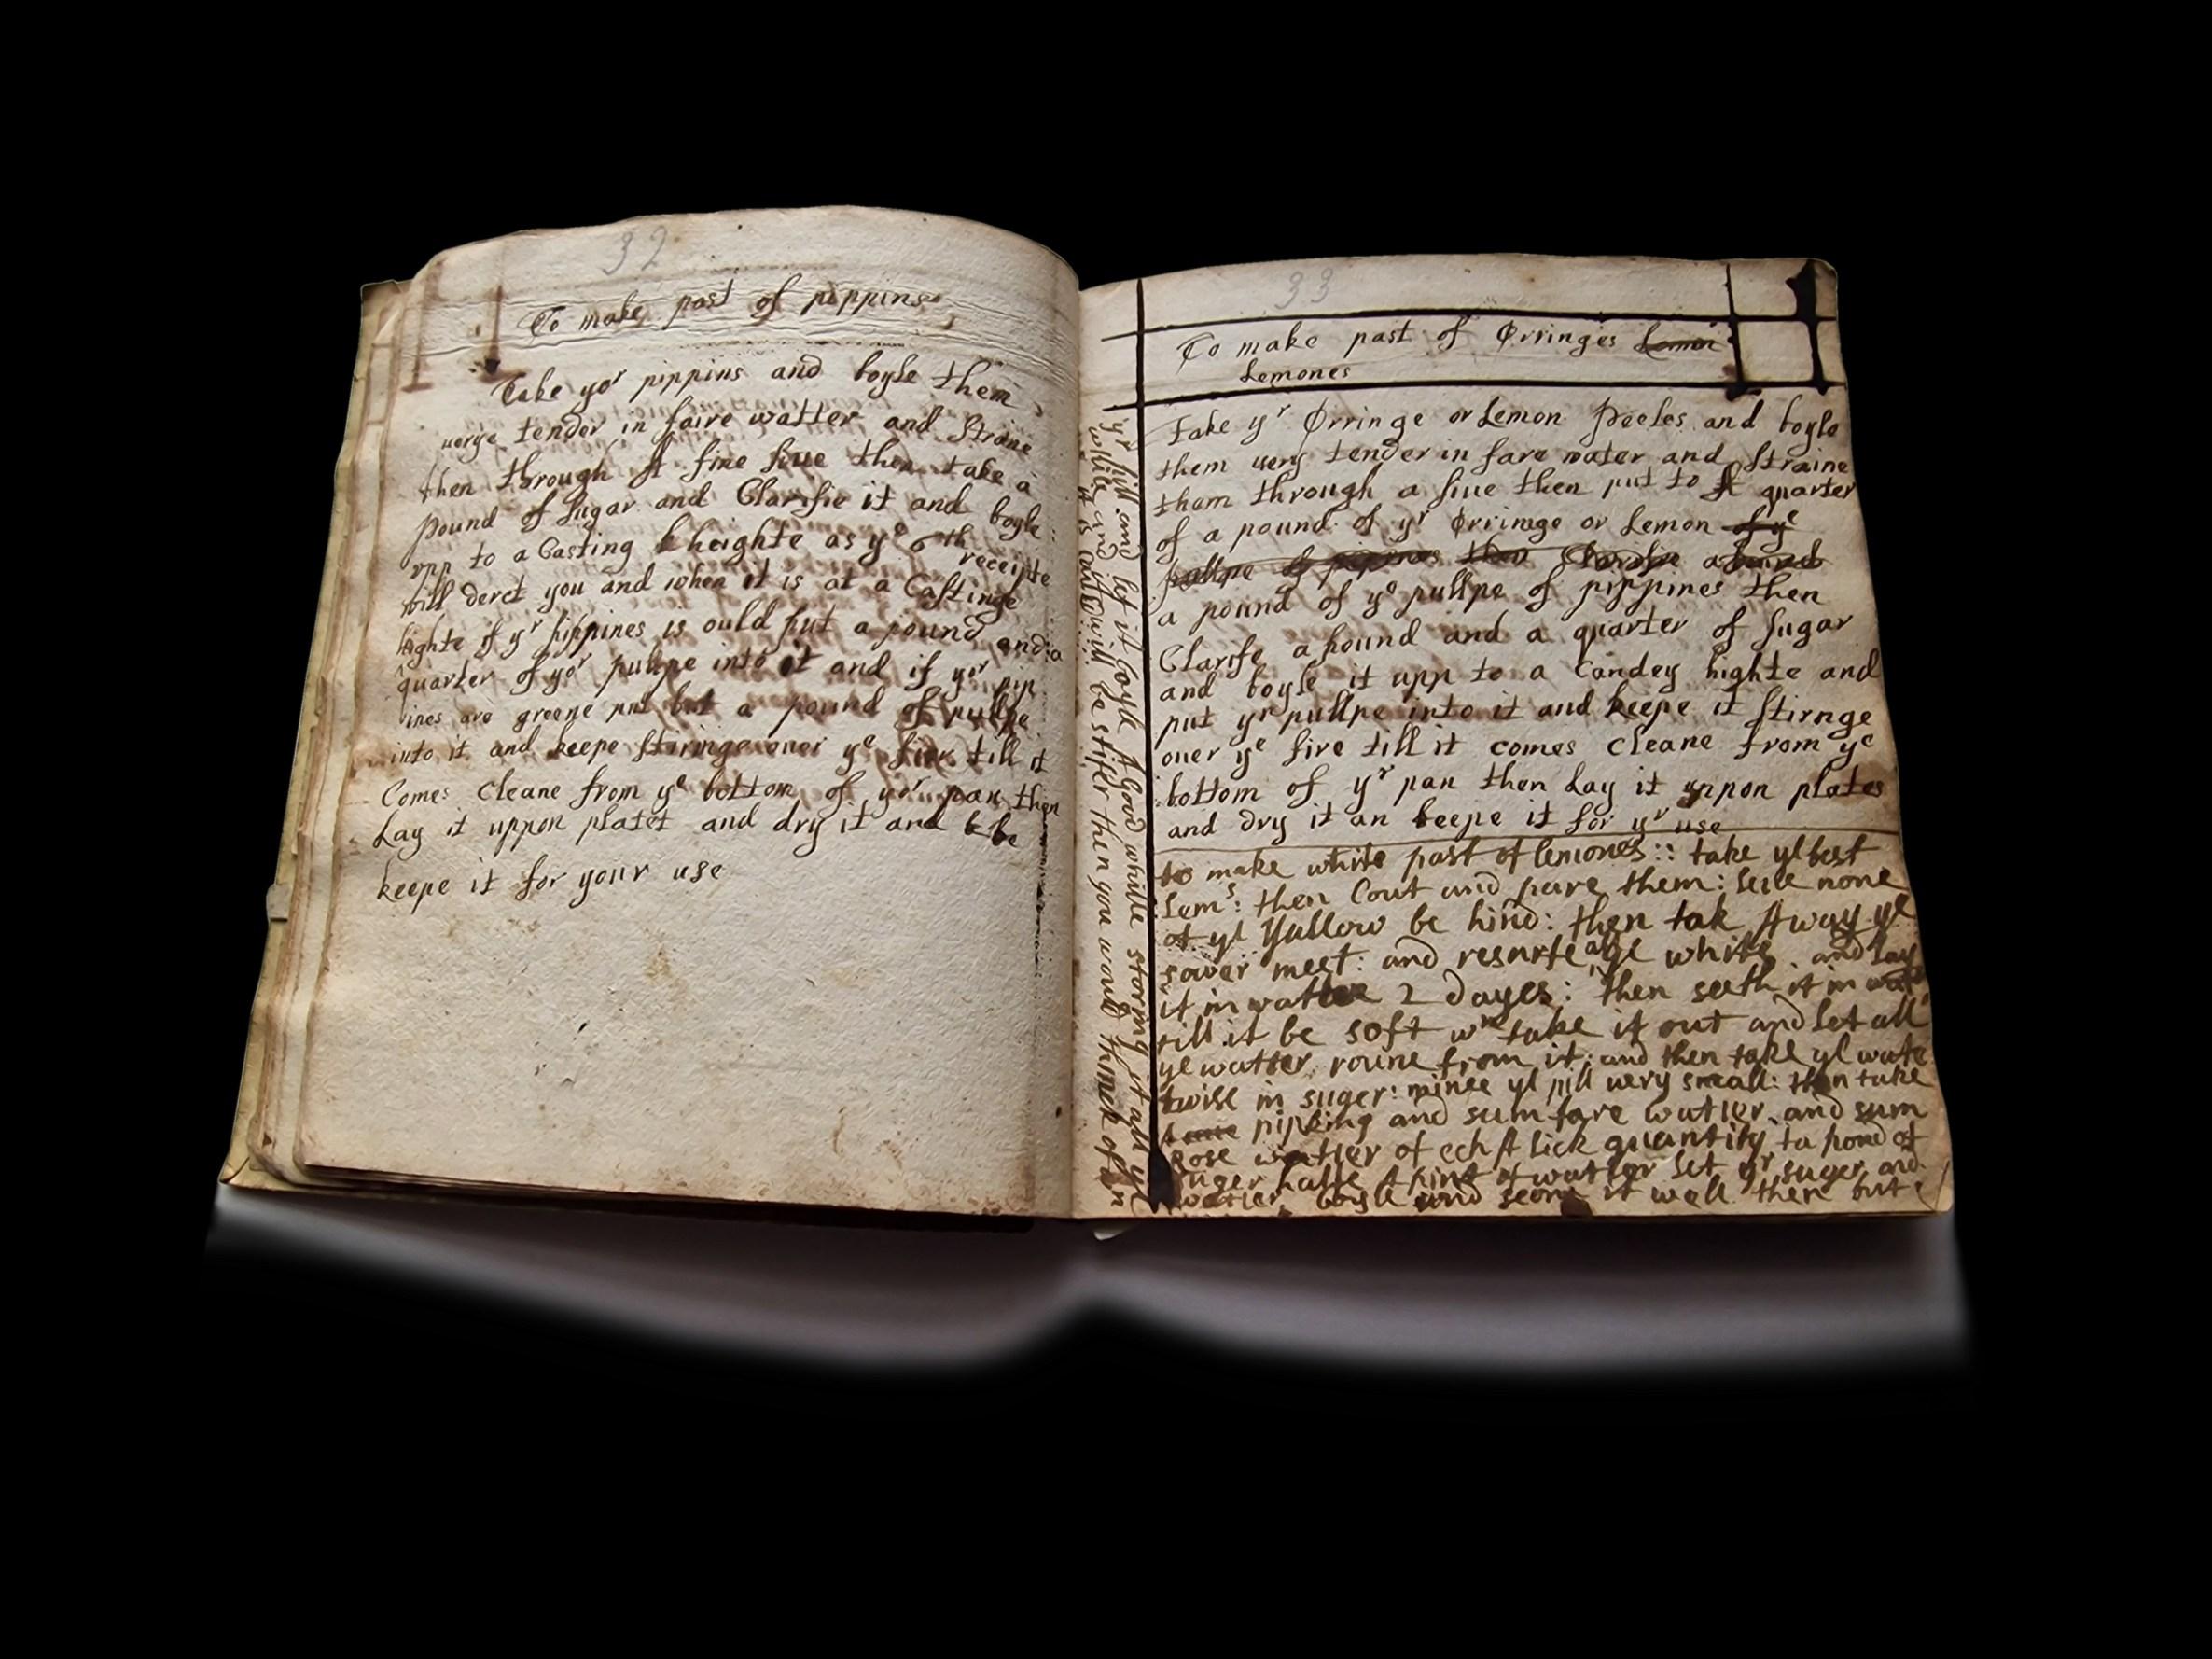 32
To make past of pippins
Take yor pippins and boyle them
uerye tender in faire watter and Straine
then through A fine siue then take a
pound of sugar and Clarifie it and boyle
vpp to a Casting heighte as ye 6th receipte
will derct you and when it is at a Castinge
highte if yr pippines is ould put a pound and a
quarter of yor pullpe into it and if yor pip
ines are greene put but a pound of pullpe
into it and keepe stiringe ouer ye fier till it
Comes cleane from ye bottom of yor pan then
Lay it uppon plates and dry it and
keepe it for your use
33
To make past of Orringes Lemon
Lemones
Take yr Orringe or Lemon Peeles and boyle
them uery tender in fare water and Straine
them through a siue then put to A quarter
of a pound of yr Orringe or Lemon of ye
pullpe of pippines then Clarifie a pound
a pound of ye pullpe of pippines then
Clarife a pound and a quarter of sugar
and boyle it upp to a Candey highte and
put yr pullpe into it and keepe it Stirnge
ouer ye fire till it comes cleane from ye
bottom of yr pan then Lay it uppon plates
and dry it an keepe it for yr use
to make white past of lemones :: take ye best
Lems: then Cout and pare them: leue none
of ye yallow be hind: then tak Away ye
sower meet: and resarue all ye white and lay
it in watter 2 dayes: then seeth it in
till it be soft wn take it out and let all
ye watter roune from it: and then take ye
twise in suger: mince ye pill uery small: then take
pipking and sum fare watter and sum
Rose watter of ech A lick quantity to pond of
suger halfe A pint of watter let yr suger and
watter boyle and scom it well then but
yr pill and let it boyle A Good whille storing it all ye
whille and it will be stifer then you would thinck of
it is could